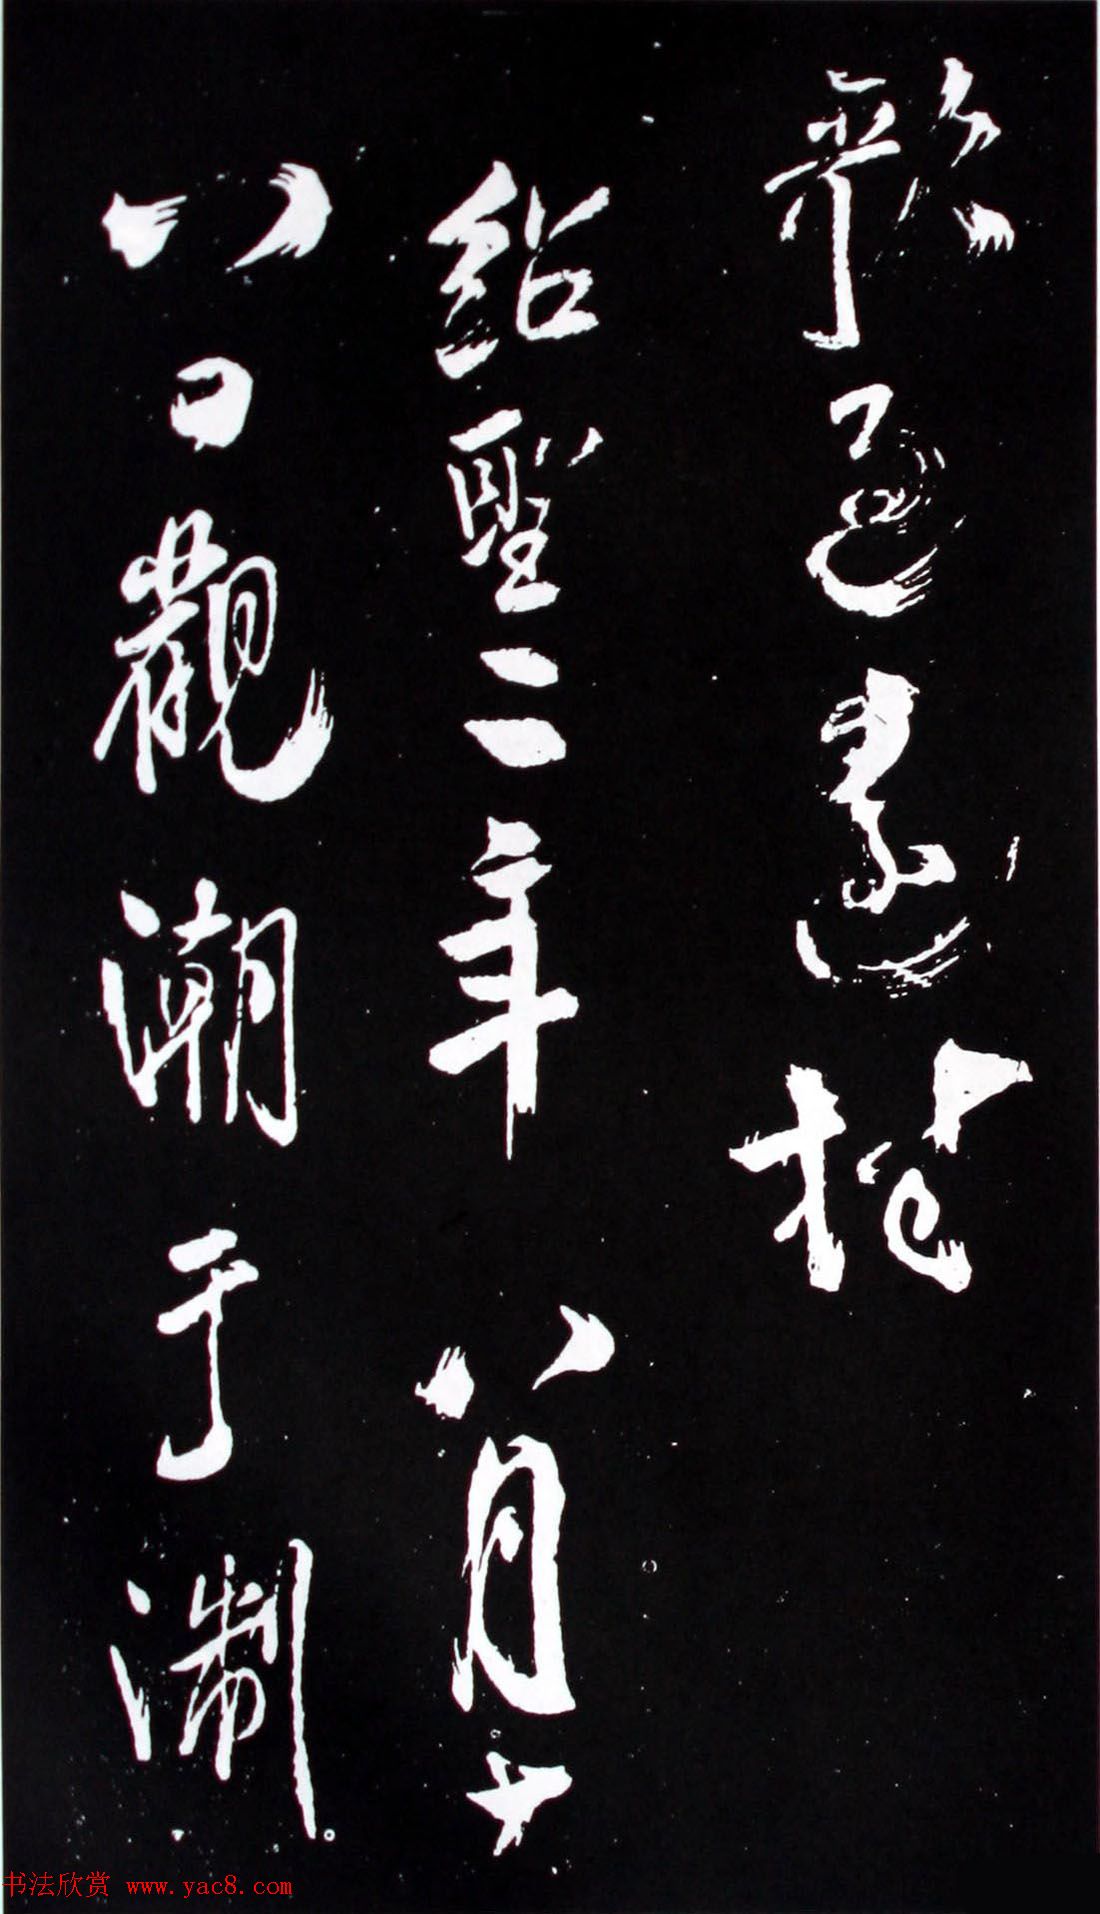 歌已遠杉
紹聖二年八月十
八日觀潮于淛
书法欣赏 www.yac8.com